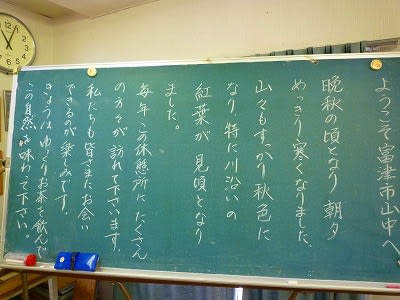 ようこそ富津市山中へ。
晩秋の頃となり 朝夕
めっきり寒くなりました。
山々もすっかり秋色に
なり 特に川沿いの
紅葉が 見頃となり
ました。
毎年、この休憩所に たくさん
の方々が 訪れて下さいます。
私たちも 皆さまにお会い
できるのが楽しみです。
きょうは ゆっくりお茶を飲んで
この自然を味わって下さい。